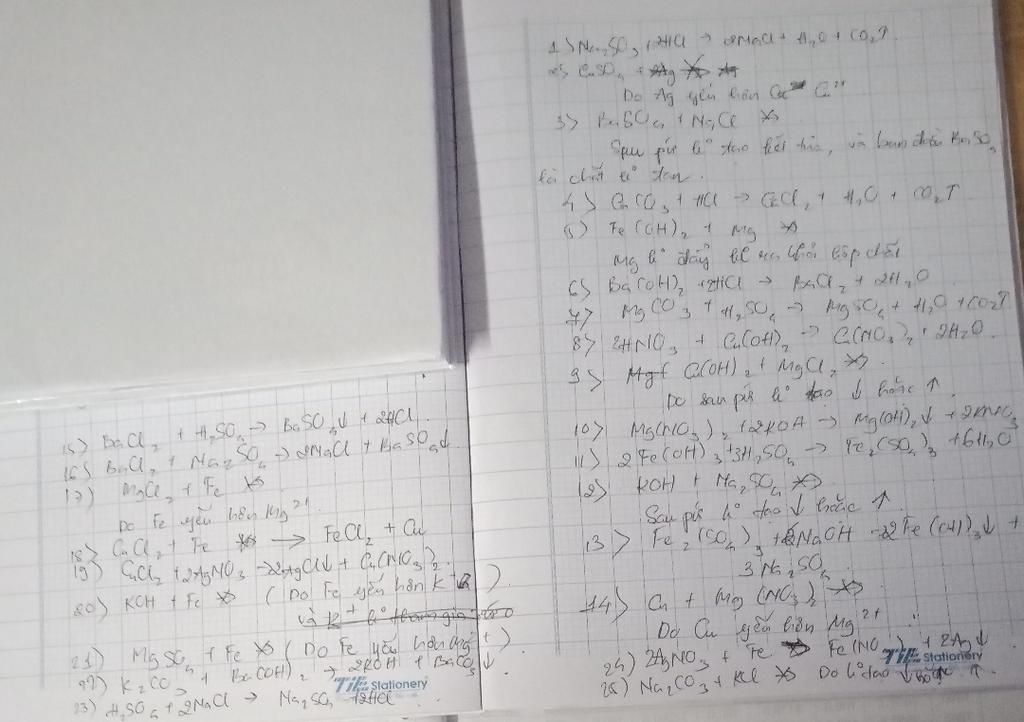 1) Na₂SO₃ + 2HCl → 2NaCl + H₂O + CO₂↑
2) CuSO₄ + Ag
Do Ag yếu hơn Cu²⁺
3) BaSO₄ + NaCl
Sau pứ k° tạo kết tủa, và ban đầu BaSO₄
là chất k° tan.
4) CaCO₃ + HCl → CaCl₂ + H₂O + CO₂↑
5) Fe(OH)₂ + Mg
Mg k° đẩy ra khỏi hợp chất
6) Ba(OH)₂ + 2HCl → BaCl₂ + 2H₂O
7) MgCO₃ + H₂SO₄ → MgSO₄ + H₂O + CO₂↑
8) 2HNO₃ + Cu(OH)₂ → Cu(NO₃)₂ + 2H₂O
9) Cu(OH)₂ + MgCl₂
Do sau pứ k° tạo ↓ hoặc ↑
10) Mg(NO₃)₂ + 2KOH → Mg(OH)₂↓ + 2KNO₃
11) 2Fe(OH)₃ + 3H₂SO₄ → Fe₂(SO₄)₃ + 6H₂O
12) KOH + Na₂SO₄
Sau pứ k° tạo ↓ hoặc ↑
13) Fe₂(SO₄)₃ + 6NaOH → 2Fe(OH)₃↓ +
3Na₂SO₄
14) Cu + Mg(NO₃)₂
Do Cu yếu hơn Mg²⁺
15) BaCl₂ + H₂SO₄ → BaSO₄↓ + 2HCl
16) BaCl₂ + Na₂SO₄ → 2NaCl + BaSO₄↓
17) MgCl₂ + Fe
Do Fe yếu hơn Mg²⁺
18) CuCl₂ + Fe → FeCl₂ + Cu
19) CuCl₂ + 2AgNO₃ → 2AgCl↓ + Cu(NO₃)₂
20) KOH + Fe (Do Fe yếu hơn K)
21) MgSO₄ + Fe (Do Fe yếu hơn Mg²⁺)
22) K₂CO₃ + Ba(OH)₂ → 2KOH + BaCO₃↓
23) H₂SO₄ + 2NaCl → Na₂SO₄ + 2HCl
TiE Stationery
24) 2AgNO₃ + Fe → Fe(NO₃)₂ + 2Ag↓
25) Na₂CO₃ + KCl Do k° tạo ↓ hoặc ↑
TiE Stationery